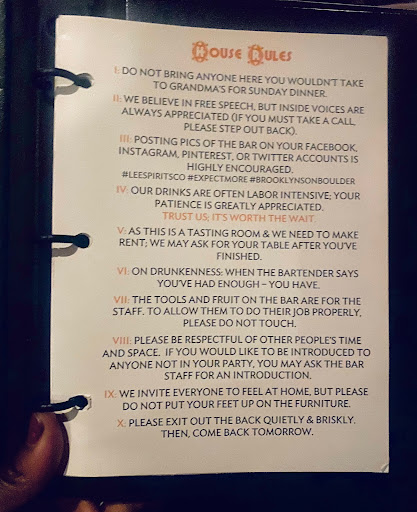 House Rules
I: DO NOT BRING ANYONE HERE YOU WOULDN'T TAKE
TO GRANDMA'S FOR SUNDAY DINNER.
II: WE BELIEVE IN FREE SPEECH, BUT INSIDE VOICES ARE
ALWAYS APPRECIATED (IF YOU MUST TAKE A CALL,
PLEASE STEP OUT BACK).
III: POSTING PICS OF THE BAR ON YOUR FACEBOOK,
INSTAGRAM, PINTEREST, OR TWITTER ACCOUNTS IS
HIGHLY ENCOURAGED.
#LEESPIRITSCO #EXPECTMORE #BROOKLYNSONBOULDER
IV: OUR DRINKS ARE OFTEN LABOR INTENSIVE; YOUR
PATIENCE IS GREATLY APPRECIATED.
TRUST US; IT'S WORTH THE WAIT.
V: AS THIS IS A TASTING ROOM & WE NEED TO MAKE
RENT; WE MAY ASK FOR YOUR TABLE AFTER YOU'VE
FINISHED.
VI: ON DRUNKENNESS: WHEN THE BARTENDER SAYS
YOU'VE HAD ENOUGH – YOU HAVE.
VII: THE TOOLS AND FRUIT ON THE BAR ARE FOR THE
STAFF. TO ALLOW THEM TO DO THEIR JOB PROPERLY,
PLEASE DO NOT TOUCH.
VIII: PLEASE BE RESPECTFUL OF OTHER PEOPLE'S TIME
AND SPACE. IF YOU WOULD LIKE TO BE INTRODUCED TO
ANYONE NOT IN YOUR PARTY, YOU MAY ASK THE BAR
STAFF FOR AN INTRODUCTION.
IX: WE INVITE EVERYONE TO FEEL AT HOME, BUT PLEASE
DO NOT PUT YOUR FEET UP ON THE FURNITURE.
X: PLEASE EXIT OUT THE BACK QUIETLY & BRISKLY.
THEN, COME BACK TOMORROW.